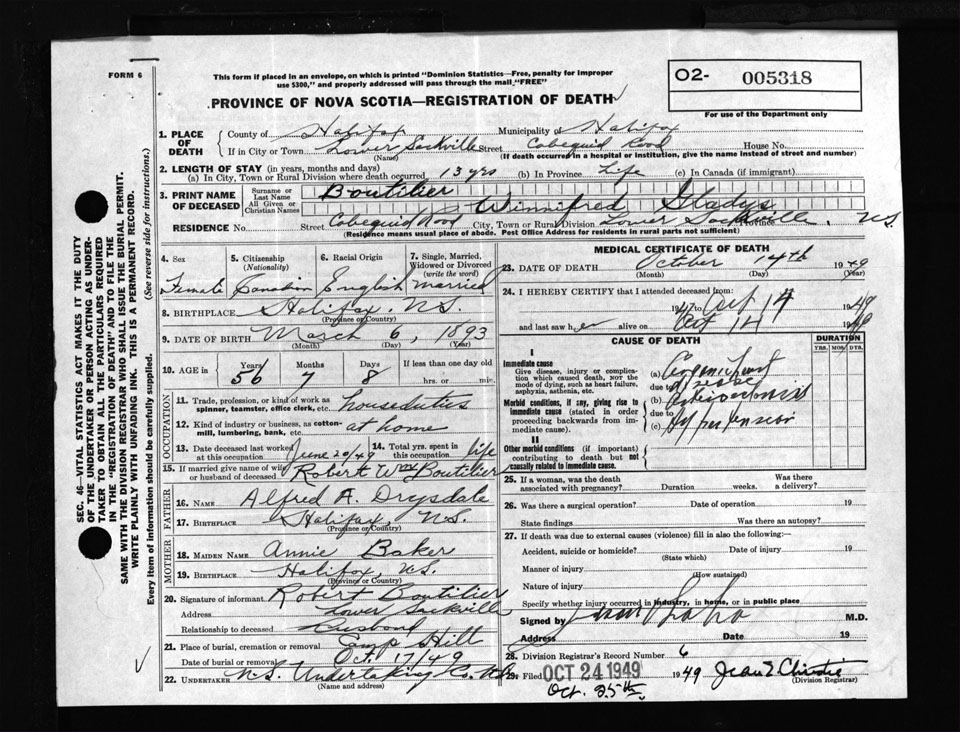 FORM 6
This form if placed in an envelope, on which is printed "Dominion Statistics—Free, penalty for improper
use $300," and properly addressed will pass through the mail "FREE"
PROVINCE OF NOVA SCOTIA—REGISTRATION OF DEATH
O2- 005318
For use of the Department only
1. PLACE OF DEATH
County of Halifax Municipality of Halifax
If in City or Town Lower Sackville Street Cobequid Road House No.
(Name) (If death occurred in a hospital or institution, give the name instead of street and number)
2. LENGTH OF STAY (in years, months and days)
(a) In City, Town or Rural Division where death occurred 13 yrs (b) In Province Life (c) In Canada (if immigrant)
3. PRINT NAME OF DECEASED
Surname or Last Name Boutilier
All Given or Christian Names Winnifred Gladys
RESIDENCE No. Street Cobequid Road City, Town or Rural Division Lower Sackville Province N.S.
(Residence means usual place of abode. Post Office Address for residents in rural parts not sufficient)
4. Sex Female
5. Citizenship (Nationality) Canadian
6. Racial Origin English
7. Single, Married, Widowed or Divorced (write the word) Married
8. BIRTHPLACE Halifax, N.S.
(Province or Country)
9. DATE OF BIRTH March 6, 1893
(Month) (Day) (Year)
10. AGE in Years 56 Months 7 Days 8 If less than one day old hrs. or min.
OCCUPATION
11. Trade, profession, or kind of work as spinner, teamster, office clerk, etc. houseduties
12. Kind of industry or business, as cotton-mill, lumbering, bank, etc. at home
13. Date deceased last worked at this occupation June 20/49
14. Total yrs. spent in this occupation life
15. If married give name of wife or husband of deceased Robert Wm Boutilier
FATHER
16. NAME Alfred A. Drysdale
17. BIRTHPLACE Halifax, N.S.
(Province or Country)
MOTHER
18. MAIDEN NAME Annie Baker
19. BIRTHPLACE Halifax, N.S.
(Province or Country)
20. Signature of informant Robert Boutilier
Address Lower Sackville
Relationship to deceased Husband
21. Place of burial, cremation or removal Camp Hill
Date of burial or removal Oct. 17/49
22. UNDERTAKER N.S. Undertaking Co.
(Name and address)
MEDICAL CERTIFICATE OF DEATH
23. DATE OF DEATH October 14th 1949
(Month) (Day) (Year)
24. I HEREBY CERTIFY that I attended deceased from:
1947 to Oct 14 1949
and last saw her alive on Oct 14 1949
CAUSE OF DEATH
DURATION
YRS. MOS. DYS.
I
Immediate cause
Give disease, injury or complication which caused death, not the mode of dying, such as heart failure, asphyxia, asthenia, etc.
Morbid conditions, if any, giving rise to immediate cause (stated in order proceeding backwards from immediate cause).
II
Other morbid conditions (if important) contributing to death but not causally related to immediate cause.
(a) Organic heart
due to disease
(b)
due to
(c) Hypertension
25. If a woman, was the death associated with pregnancy? Duration weeks. Was there a delivery?
26. Was there a surgical operation? Date of operation 19
State findings Was there an autopsy?
27. If death was due to external causes (violence) fill in also the following:—
Accident, suicide or homicide? Date of injury 19
(State which)
Manner of injury
(How sustained)
Nature of injury
Specify whether injury occurred in industry, in home, or in public place
Signed by M.D.
Address Date 19
28. Division Registrar's Record Number 6
29. Filed OCT 24 1949 1949 Jean E. Christie
Oct. 25th (Division Registrar)
SEC. 46—VITAL STATISTICS ACT MAKES IT THE DUTY
OF THE UNDERTAKER OR PERSON ACTING AS UNDER-
TAKER TO OBTAIN ALL THE PARTICULARS REQUIRED
IN THE "REGISTRATION OF DEATH" AND TO FILE THE
SAME WITH THE DIVISION REGISTRAR WHO SHALL ISSUE THE BURIAL PERMIT.
WRITE PLAINLY WITH UNFADING INK. THIS IS A PERMANENT RECORD.
Every item of information should be carefully supplied. (See reverse side for instructions.)